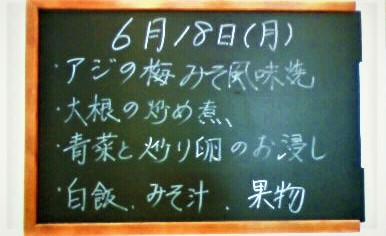 6月18日(月)
・アジの梅みそ風味焼
・大根の炒め煮、
・青菜と炒り卵のお浸し
・白飯、みそ汁、果物